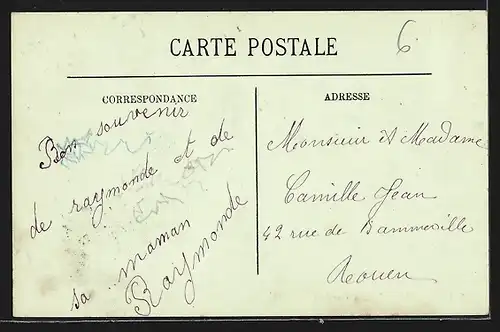 CARTE POSTALE
6
CORRESPONDANCE
Bon souvenir
de raymonde et de
sa maman
Raymonde
ADRESSE
Monsieur et Madame
Camille Jean
42 rue de Dammeville
Rouen